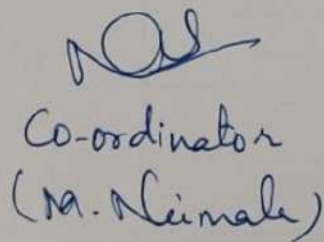 Co-ordinator
(M. Nirmala)